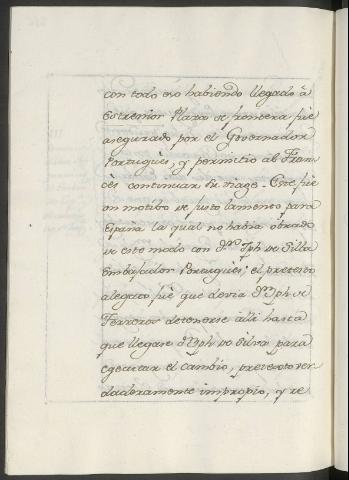 con todo eso habiendo llegado à
Estremòs Plaza de frontera fuè
asegurado por el Governador
Portuguès, y permitio al Fran
cès continuar su viage. Este fue
un motibo de justo lamento para
España la qual no habia obrado
de este modo con Dn. Jph de Silba
Embajador Portuguès; el pretexto
alegato fuè que devia Dn. Jph de
Ferreros detenerse alli hasta
que llegase Dn. Jph de Silva para
egecutar el cambio, pretexto ver
daderamente impropio, y re